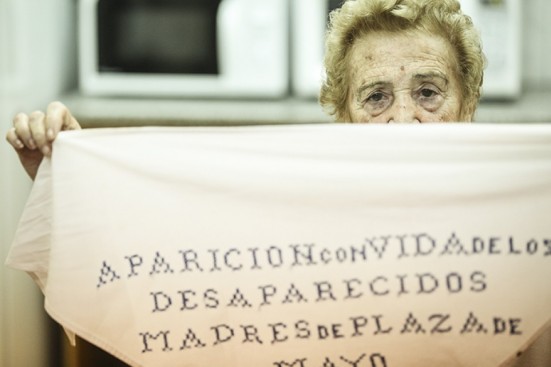 APARICION CON VIDA DE LOS
DESAPARECIDOS
MADRES DE PLAZA DE
MAYO